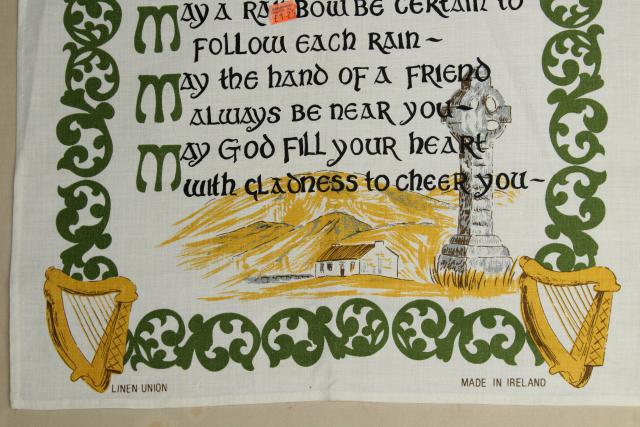 MAY A RAINBOW BE CERTAIN TO
FOLLOW EACH RAIN~
MAY THE HAND OF A FRIEND
ALWAYS BE NEAR YOU~
MAY GOD FILL YOUR HEART
WITH GLADNESS TO CHEER YOU~
LINEN UNION
MADE IN IRELAND